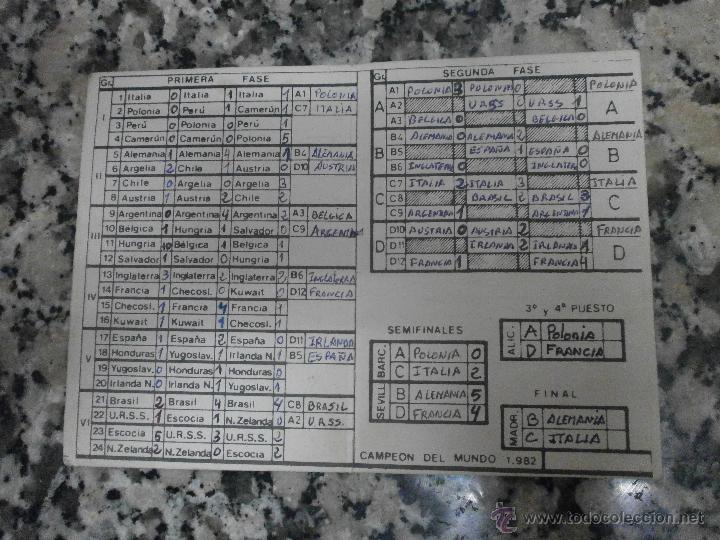 Gr. PRIMERA FASE
I
1 Italia 0 Italia 1 Italia 1 A1 POLONIA
2 Polonia 0 Perú 1 Camerún 1 C7 ITALIA
3 Perú 0 Polonia 0 Polonia 5
4 Camerún 0 Camerún 0 Perú 1
II
5 Alemania 1 Alemania 4 Alemania 1 B4 ALEMANIA
6 Argelia 2 Chile 1 Austria 0 D10 AUSTRIA
7 Chile 0 Argelia 0 Argelia 3
8 Austria 1 Austria 2 Chile 2
III
9 Argentina 0 Argentina 4 Argentina 2 A3 BELGICA
10 Bélgica 1 Hungria 1 Salvador 0 C9 ARGENTINA
11 Hungria 10 Bélgica 1 Bélgica 1
12 Salvador 1 Salvador 0 Hungria 1
IV
13 Inglaterra 3 Inglaterra 2 Inglaterra B6 INGLATERRA
14 Francia 1 Checosl. 0 Kuwait 0 D12 FRANCIA
15 Checosl. 1 Francia 4 Francia 1
16 Kuwait 1 Kuwait 1 Checosl. 1
V
17 España 1 España 2 España 0 D11 IRLANDA
18 Honduras 1 Yugoslav. 1 Irlanda N. 1 B5 ESPAÑA
19 Yugoslav. 0 Honduras 1 Honduras 0
20 Irlanda N. 0 Irlanda N. 1 Yugoslav. 1
VI
21 Brasil 2 Brasil 4 Brasil 4 C8 BRASIL
22 U.R.S.S. 1 Escocia 1 N. Zelanda 0 A2 URSS.
23 Escocia 5 U.R.S.S. 3 U.R.S.S. 2
24 N. Zelanda 2 N. Zelanda 0 Escocia 2
Gr. SEGUNDA FASE
A
A1 POLONIA 3 POLONIA 0 POLONIA
A2 URSS 0 URSS 1 A
A3 BELGICA 0 BELGICA 0
B
B4 ALEMANIA 0 ALEMANIA 2 ALEMANIA
B5 ESPAÑA 1 ESPAÑA 0 B
B6 INGLATER 0 INGLATER 0
C
C7 ITALIA 2 ITALIA 3 ITALIA
C8 BRASIL 2 BRASIL 3 C
C9 ARGENTINA 1 ARGENTINA 1
D
D10 AUSTRIA 0 AUSTRIA 2 FRANCIA
D11 IRLANDA 2 IRLANDA 1 D
D12 FRANCIA 1 FRANCIA 4
SEMIFINALES
BARC.
A POLONIA 0
C ITALIA 2
SEVILL
B ALEMANIA 5
D FRANCIA 4
3º y 4º PUESTO
ALIC.
A POLONIA
D FRANCIA
FINAL
MADR.
B ALEMANIA
C ITALIA
CAMPEON DEL MUNDO 1.982
© www.todocoleccion.net